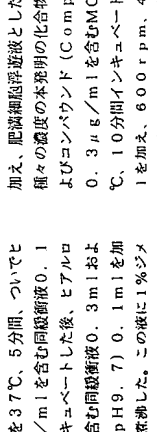 を37℃、5分間、ついでヒ
/mlを含む同緩衝液0.1
キュベートした後、ヒアルロ
含む同緩衝液0.3mlおよ
pH9.7)0.1mlを加
煮沸した。この液に1%ジメ
加え、肥満細胞浮遊液とした
種々の濃度の本発明の化合物
よびコンパウンド(Comp
0.3μg/mlを含むMC
℃、10分間インキュベート
lを加え、600rpm、4